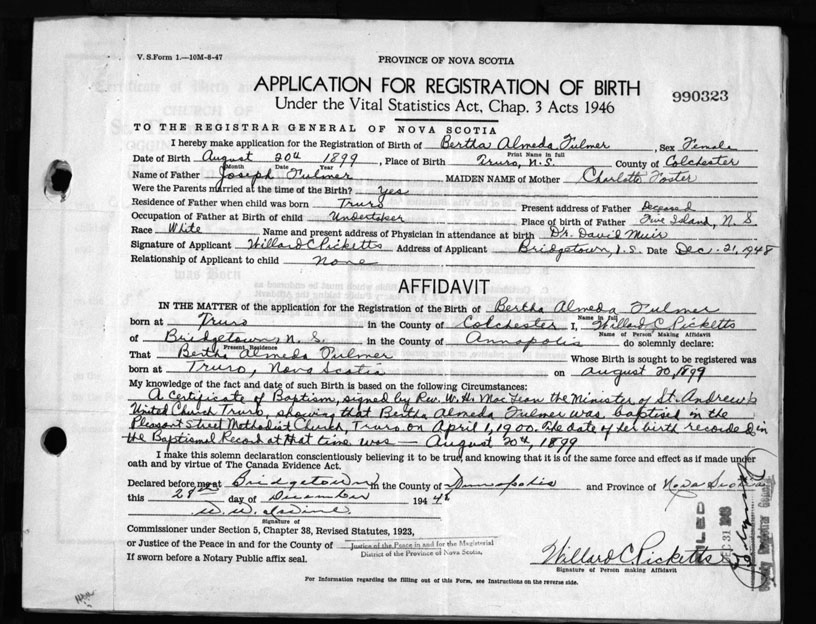 V. S. Form 1.—10M-8-47
PROVINCE OF NOVA SCOTIA
APPLICATION FOR REGISTRATION OF BIRTH
990323
Under the Vital Statistics Act, Chap. 3 Acts 1946
TO THE REGISTRAR GENERAL OF NOVA SCOTIA
I hereby make application for the Registration of Birth of Bertha Almeda Fulmer, Sex Female
Print Name in full
Date of Birth August 20th 1899, Place of Birth Truro, N.S. County of Colchester
Month Date Year
Name of Father Joseph Fulmer MAIDEN NAME of Mother Charlotte Foster
Were the Parents married at the time of the Birth? yes
Residence of Father when child was born Truro Present address of Father Deceased
Occupation of Father at Birth of child Undertaker Place of birth of Father Five Island, N.S.
Race White Name and present address of Physician in attendance at birth Dr. David Muir
Signature of Applicant Willard C Ricketts Address of Applicant Bridgetown, N.S. Date Dec. 21, 1948
Relationship of Applicant to child None
AFFIDAVIT
IN THE MATTER of the application for the Registration of the Birth of Bertha Almeda Fulmer
Name in full
born at Truro in the County of Colchester I, Willard C Ricketts
Name of Person Making Affidavit
of Bridgetown, N.S. in the County of Annapolis do solemnly declare:
Present Residence
That Bertha Almeda Fulmer Whose Birth is sought to be registered was
born at Truro, Nova Scotia on August 20, 1899
My knowledge of the fact and date of such Birth is based on the following Circumstances:
A Certificate of Baptism, signed by Rev. W. H. the Minister of St. Andrew's
United Church Truro, showing that Bertha Almeda Fulmer was baptised in the
Pleasant Street Methodist Church, Truro on April 1, 1900. The date of her birth recorded in
the Baptismal Record at that time was — August 20th, 1899
I make this solemn declaration conscientiously believing it to be true, and knowing that it is of the same force and effect as if made under
oath and by virtue of The Canada Evidence Act.
Declared before me at Bridgetown in the County of Annapolis and Province of Nova Scotia
this day of December 1948
Signature of
Commissioner under Section 5, Chapter 38, Revised Statutes, 1923,
or Justice of the Peace in and for the County of
Justice of the Peace in and for the Magisterial
District of the Province of Nova Scotia.
If sworn before a Notary Public affix seal.
Willard C. Ricketts
Signature of Person making Affidavit
For Information regarding the filling out of this Form, see Instructions on the reverse side.
FILED